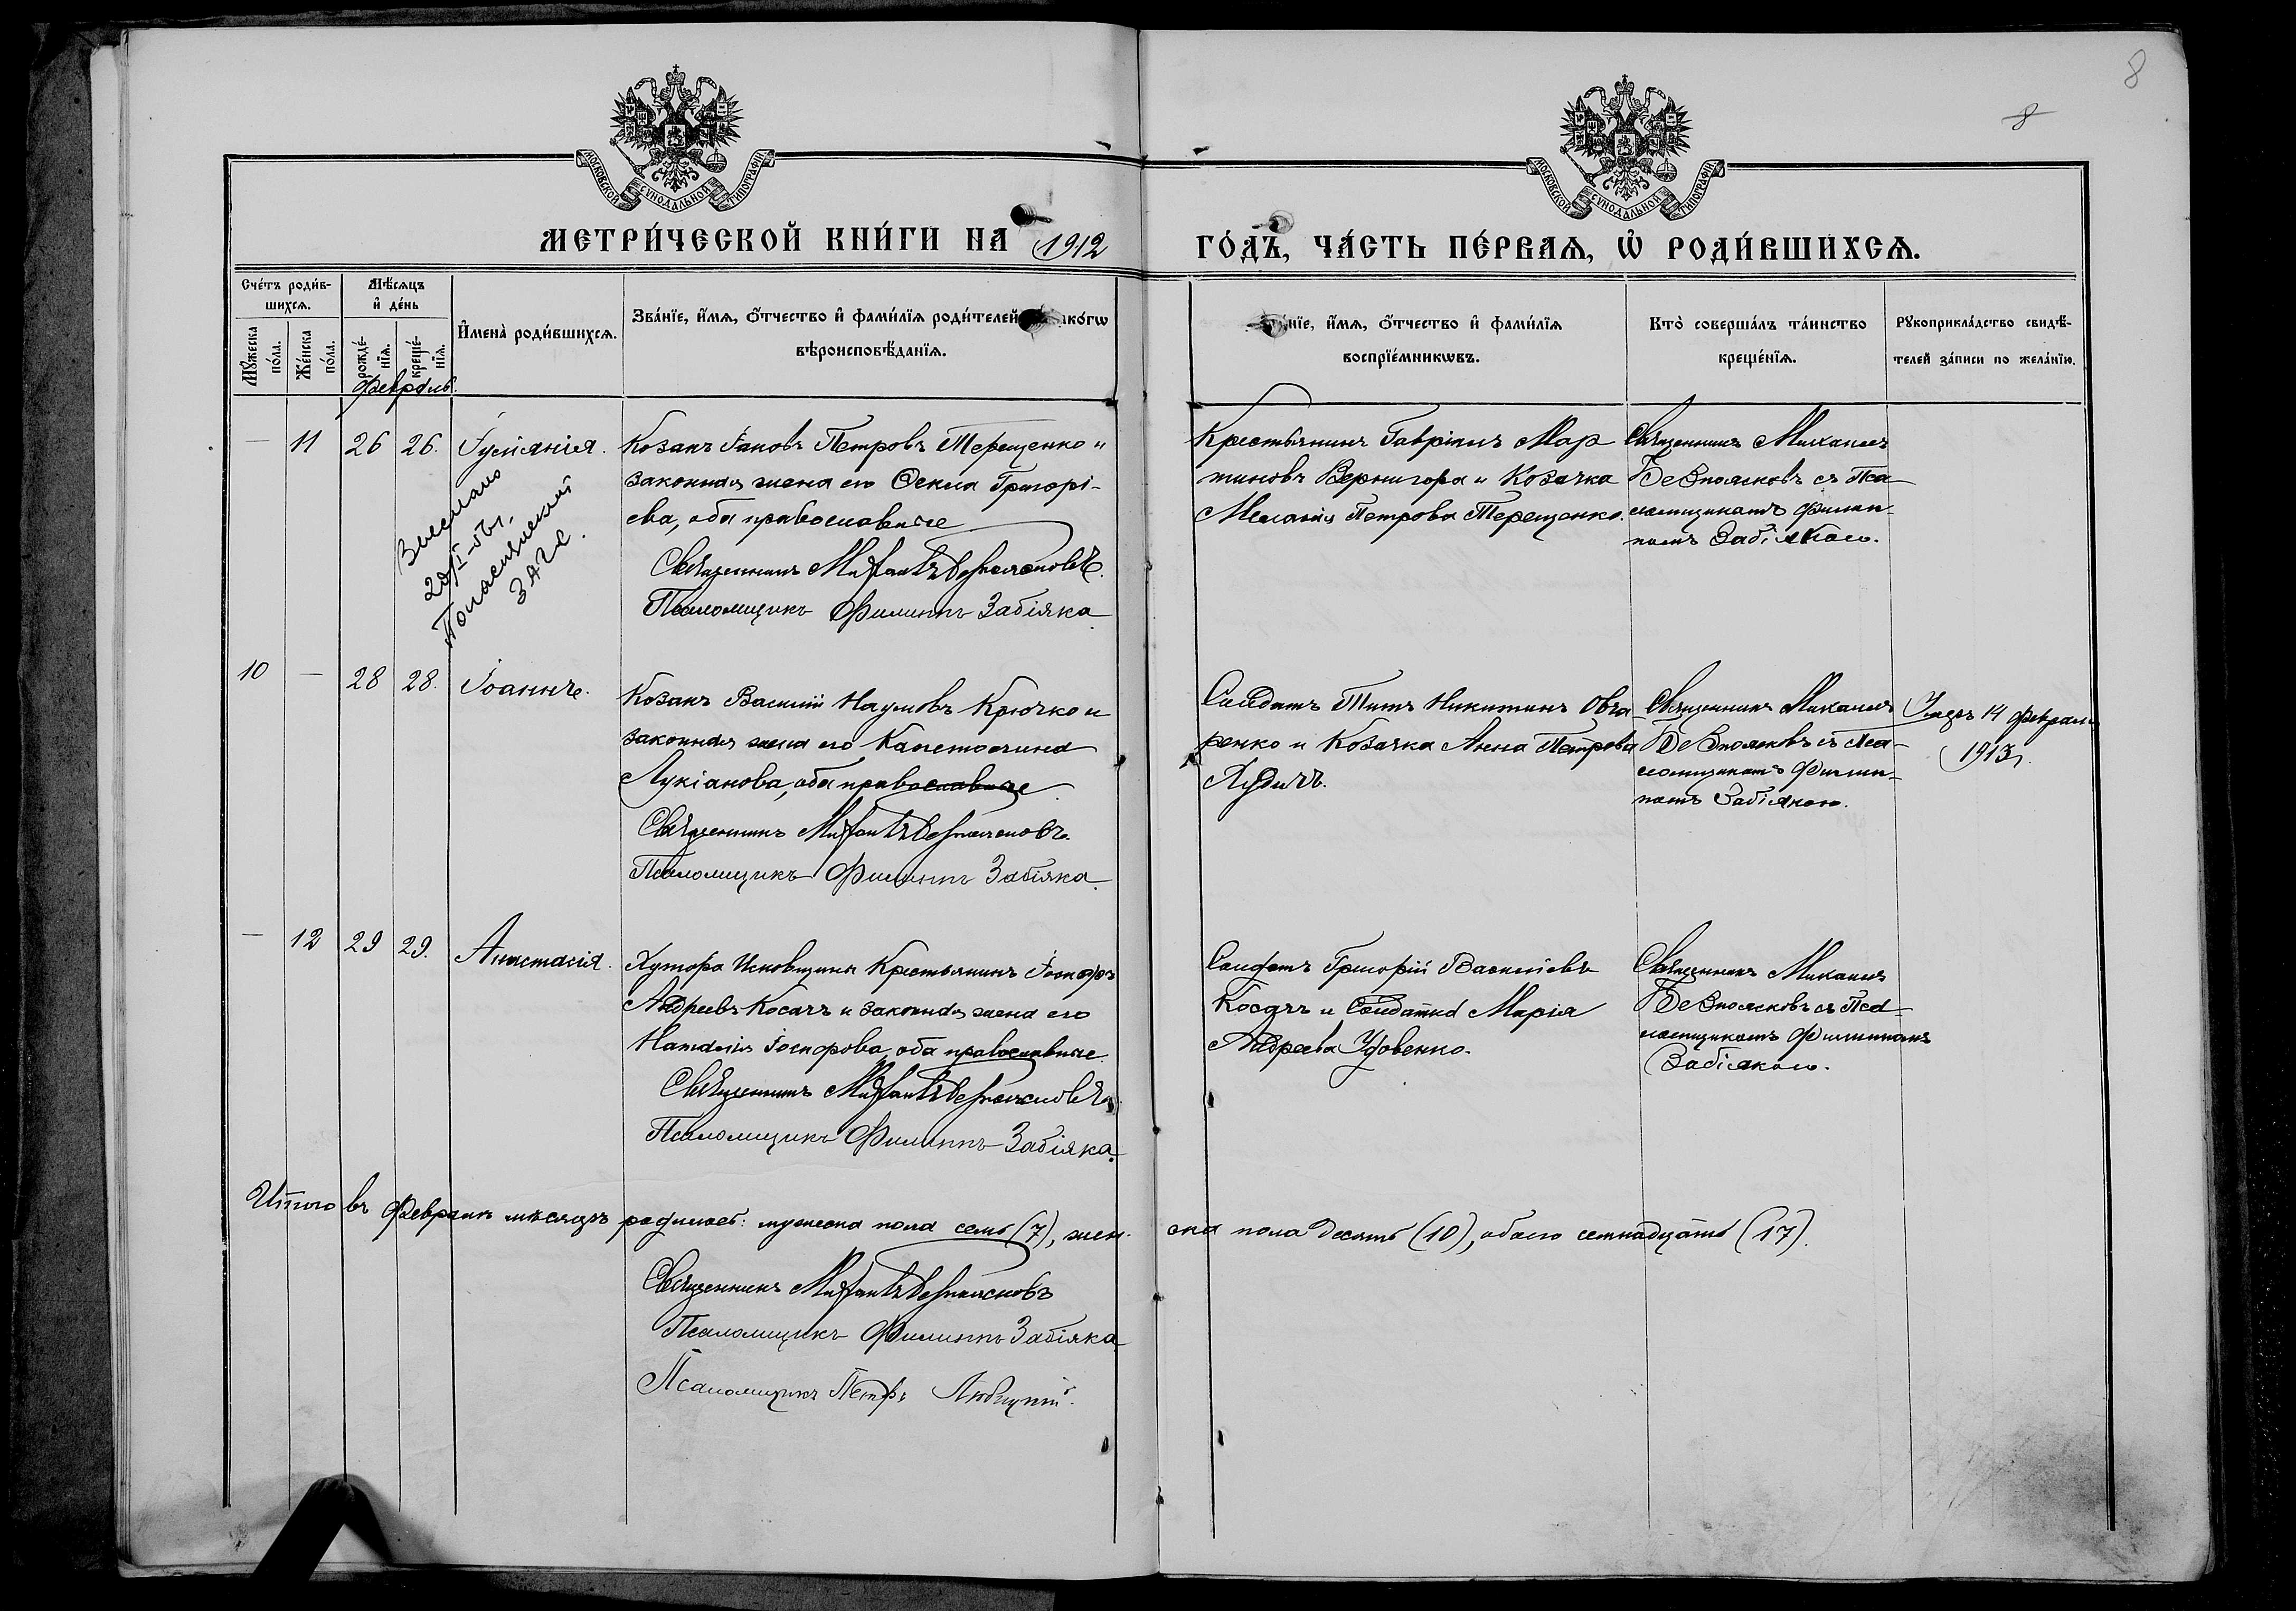 8
8
МОСКОВСКОЙ СУНОДАЛЬНОЙ ТИПОГРАФІИ
МОСКОВСКОЙ СУНОДАЛЬНОЙ ТИПОГРАФІИ
МЕТРИ́ЧЕСКОЙ КНИ́ГИ НА 1912 ГО́ДЪ, ЧА́СТЬ ПЕ́РВАЯ, Ѡ РОДИ́ВШИХСЯ.
Сче́тъ роди́в-
шихся.
Мѣ́сяцъ
и҆ де́нь
Мꙋ́жеска
по́ла.
Же́нска
по́ла.
рожде́-
нїя.
креще́-
нїя.
И҆мена̀ роди́вшихся.
Зва́нїе, и҆́мя, ѻ҆́тчество и҆ фами́лїя роди́телей ако́гѡ
вѣроисповѣ́данїя.
нїе, и҆́мя, ѻ҆́тчество и҆ фами́лїя
воспрїе́мникѡвъ.
Кто̀ соверша́лъ та́инство
креще́нїя.
Рꙋкоприкла́дство свидѣ́-
телей за́писи по жела́нїю.
Февраль.
— 11 26 26. Іуліанія.
Козакъ Іаковъ Петровъ Терещенко и
законная жена его Ѳекла Григорі-
ева, оба православные
Священникъ Михаилъ Безпоясковъ.
Псаломщикъ Филиппъ Забіяка.
Крестьянинъ Гавріилъ Мар
тиновъ Вернигора и Козачка
Меланія Петрова Терещенко.
Священникъ Михаилъ
Безпоясковъ съ Пса
ломщикомъ Филип-
помъ Забіякою.
Выслано
ЗАГС.
10 — 28 28. Іоаннъ.
Козакъ Василій Наумовъ Крючко и
законная жена его Капетолина
Лукіанова, оба православные
Священникъ Михаилъ Безпоясковъ.
Псаломщикъ Филиппъ Забіяка.
Солдатъ Титъ Никитинъ Овча
ренко и Козачка Анна Петрова
Худичъ.
Священникъ Михаилъ
Безпоясковъ съ Пса-
ломщикомъ Филип-
помъ Забіякою.
Умеръ 14 Февраля
1913
— 12 29 29. Анастасія.
Хутора Крестьянинъ Іосифъ
Андреевъ Косачъ и законная жена его
Наталія Іосифова, оба православные.
Священникъ Михаилъ Безпоясковъ.
Псаломщикъ Филиппъ Забіяка.
Солдатъ Григорій Василіевъ
Косачъ и Солдатка Марія
Андреева Удовенко.
Священникъ Михаилъ
Безпоясковъ съ Пса-
ломщикомъ Филиппомъ
Забіякою.
Итого въ Февралѣ мѣсяцѣ родилось: мужеска пола семь (7), жен-ска пола десять (10), обоего семнадцать (17).
Священникъ Михаилъ Безпоясковъ
Псаломщикъ Филиппъ Забіяка
Псаломщикъ Петръ Любицкій.